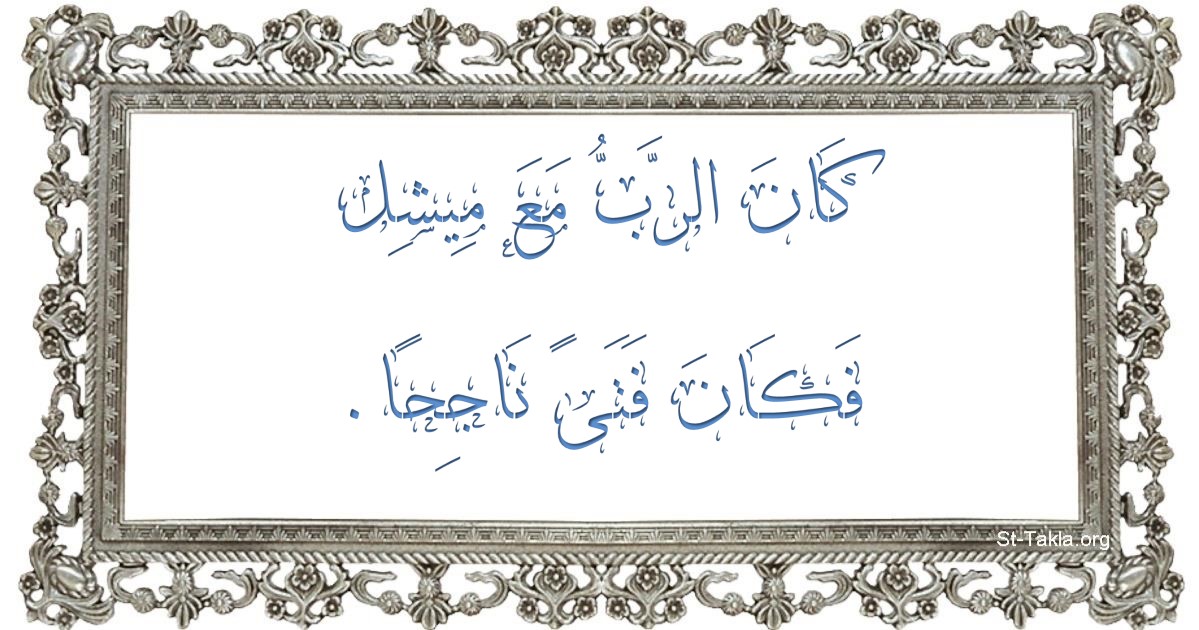 كَانَ الرَّبُّ مَعَ مِيشِل
فَكَانَ فَتَىً نَاجِحًا .
St-Takla.org